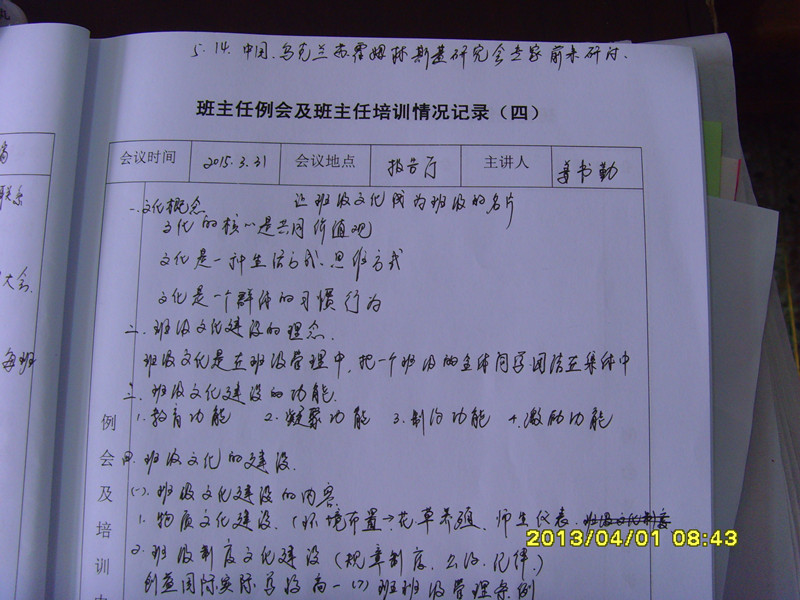 5.14.中国、乌克兰苏霍姆林斯基研究会专家前来研讨.
班主任例会及班主任培训情况记录（四）
会议时间 2015.3.31 会议地点 报告厅 主讲人 书勤
让班级文化成为班级的名片
一.文化概念
文化的核心是共同价值观
文化是一种生活方式.思维方式
文化是一个群体的习惯行为
二.班级文化建设的理念.
班级文化是在班级管理中,把一个班级的全体同学团结在集体中
三.班级文化建设的功能.
1.教育功能 2.凝聚功能 3.制约功能 4.激励功能
四.班级文化的建设.
(一).班级文化建设的内容
1.物质文化建设.(环境布置→花草养殖、师生仪表.
2.班级制度文化建设(规章制度、公约、纪律.)
高一(7)班班级管理条例
例会及培训
大会.
每班
2013/04/01 08:43